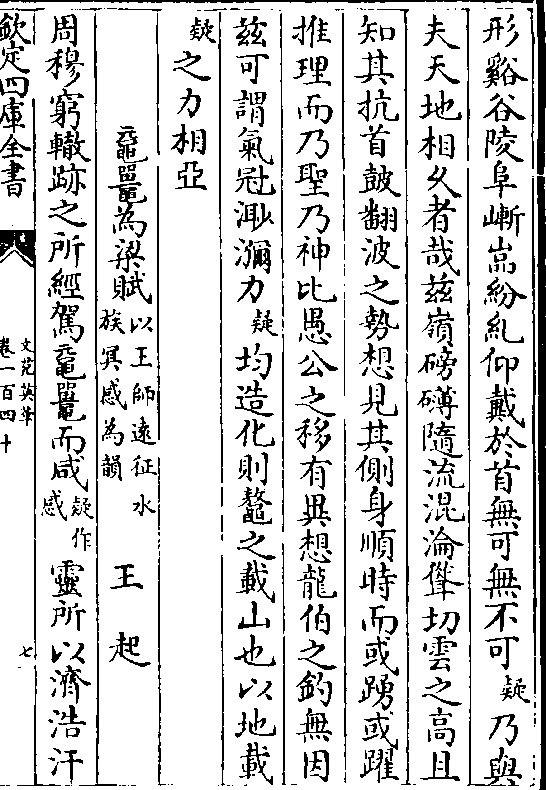 形谿谷陵阜嶄嵓紛糺仰戴於首無可無不可疑乃與
夫天地相乆者哉兹嶺磅礴隨流混淪聳切雲之髙且
知其抗首皷翻波之勢想見其側身順時而或踴或躍
推理而乃聖乃神比愚公之移有異想龍伯之釣無因
兹可謂氣冠溟瀰力疑均造化則鼇之載山也以地載
疑之力相亞
黿鼉為梁賦以王師遠征水族冥感為韻 王起
周穆窮轍跡之所經駕黿鼉而咸疑作感靈所以濟浩汗
欽定四庫全書
文苑英華
卷一百四十
七